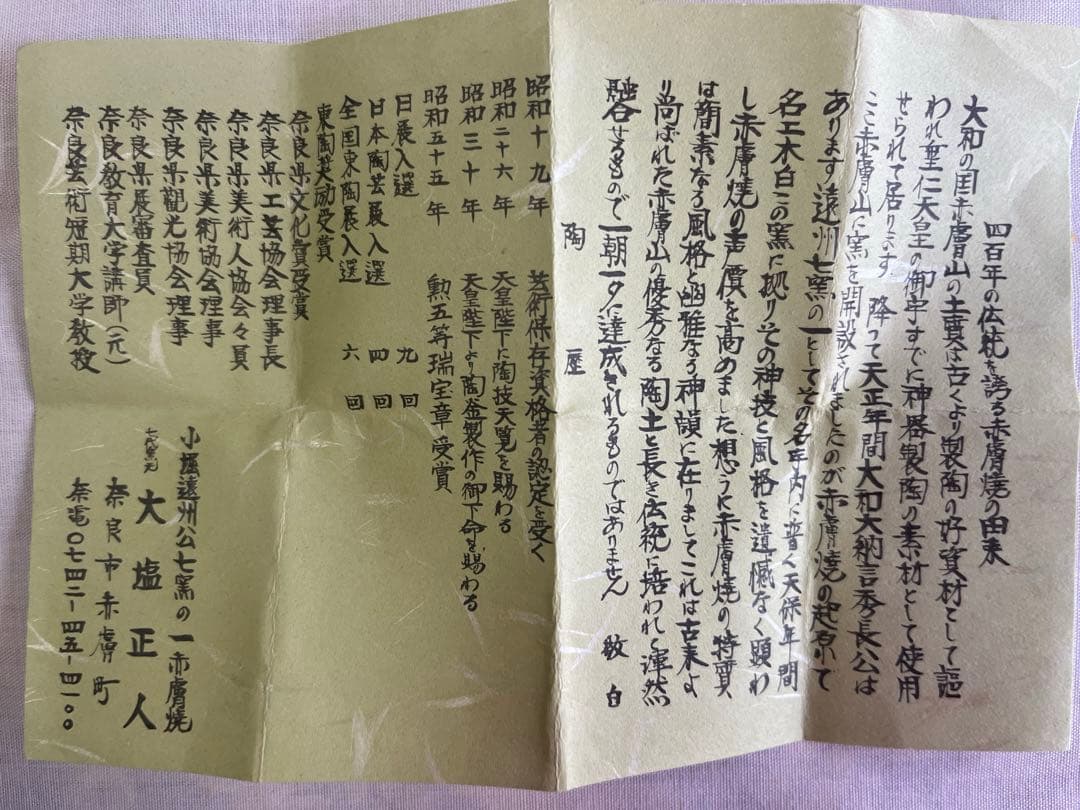 四百年の伝統を誇る赤膚焼の由来
大和の国赤膚山の土質は古くより製陶の好資材として謳
われ垂仁天皇の御宇すでに神器製陶の素材として使用
せられて居ります 降って天正年間大和大納言秀長公は
ここ赤膚山に窯を開設されましたのが赤膚焼の起原で
あります遠州七窯の一としてその名年内に普く天保年間
名工木白この窯に拠りその神技と風格を遺憾なく顕わ
し赤膚焼の声價を高めました想うに赤膚焼の特質
は簡素なる風格と幽雅なる神韻に在りましてこれは古来よ
り尚ばれた赤膚山の優秀なる陶土と長き伝統に培われて渾然
融合せるもので一朝一夕に達成されるものではありません 敬白
陶歴
昭和十九年 芸術保存資格者の認定を受く
昭和二十六年 天皇陛下に陶技天覧を賜わる
昭和三十年 天皇陛下より陶釜製作の御下命を賜わる
昭和五十五年 勲五等瑞宝章受賞
日展入選 九回
日本陶芸展入選 四回
全国東陶展入選 六回
東陶奨励受賞
奈良県文化賞受賞
奈良県工芸協会理事長
奈良県美術人協会々員
奈良県美術協会理事
奈良県観光協会理事
奈良県展審査員
奈良教育大学講師(元)
奈良芸術短期大学教授
小堀遠州公七窯の一赤膚焼
七代窯元 大塩正人
奈良市赤膚町
奈電〇七四二-四五-四一〇〇